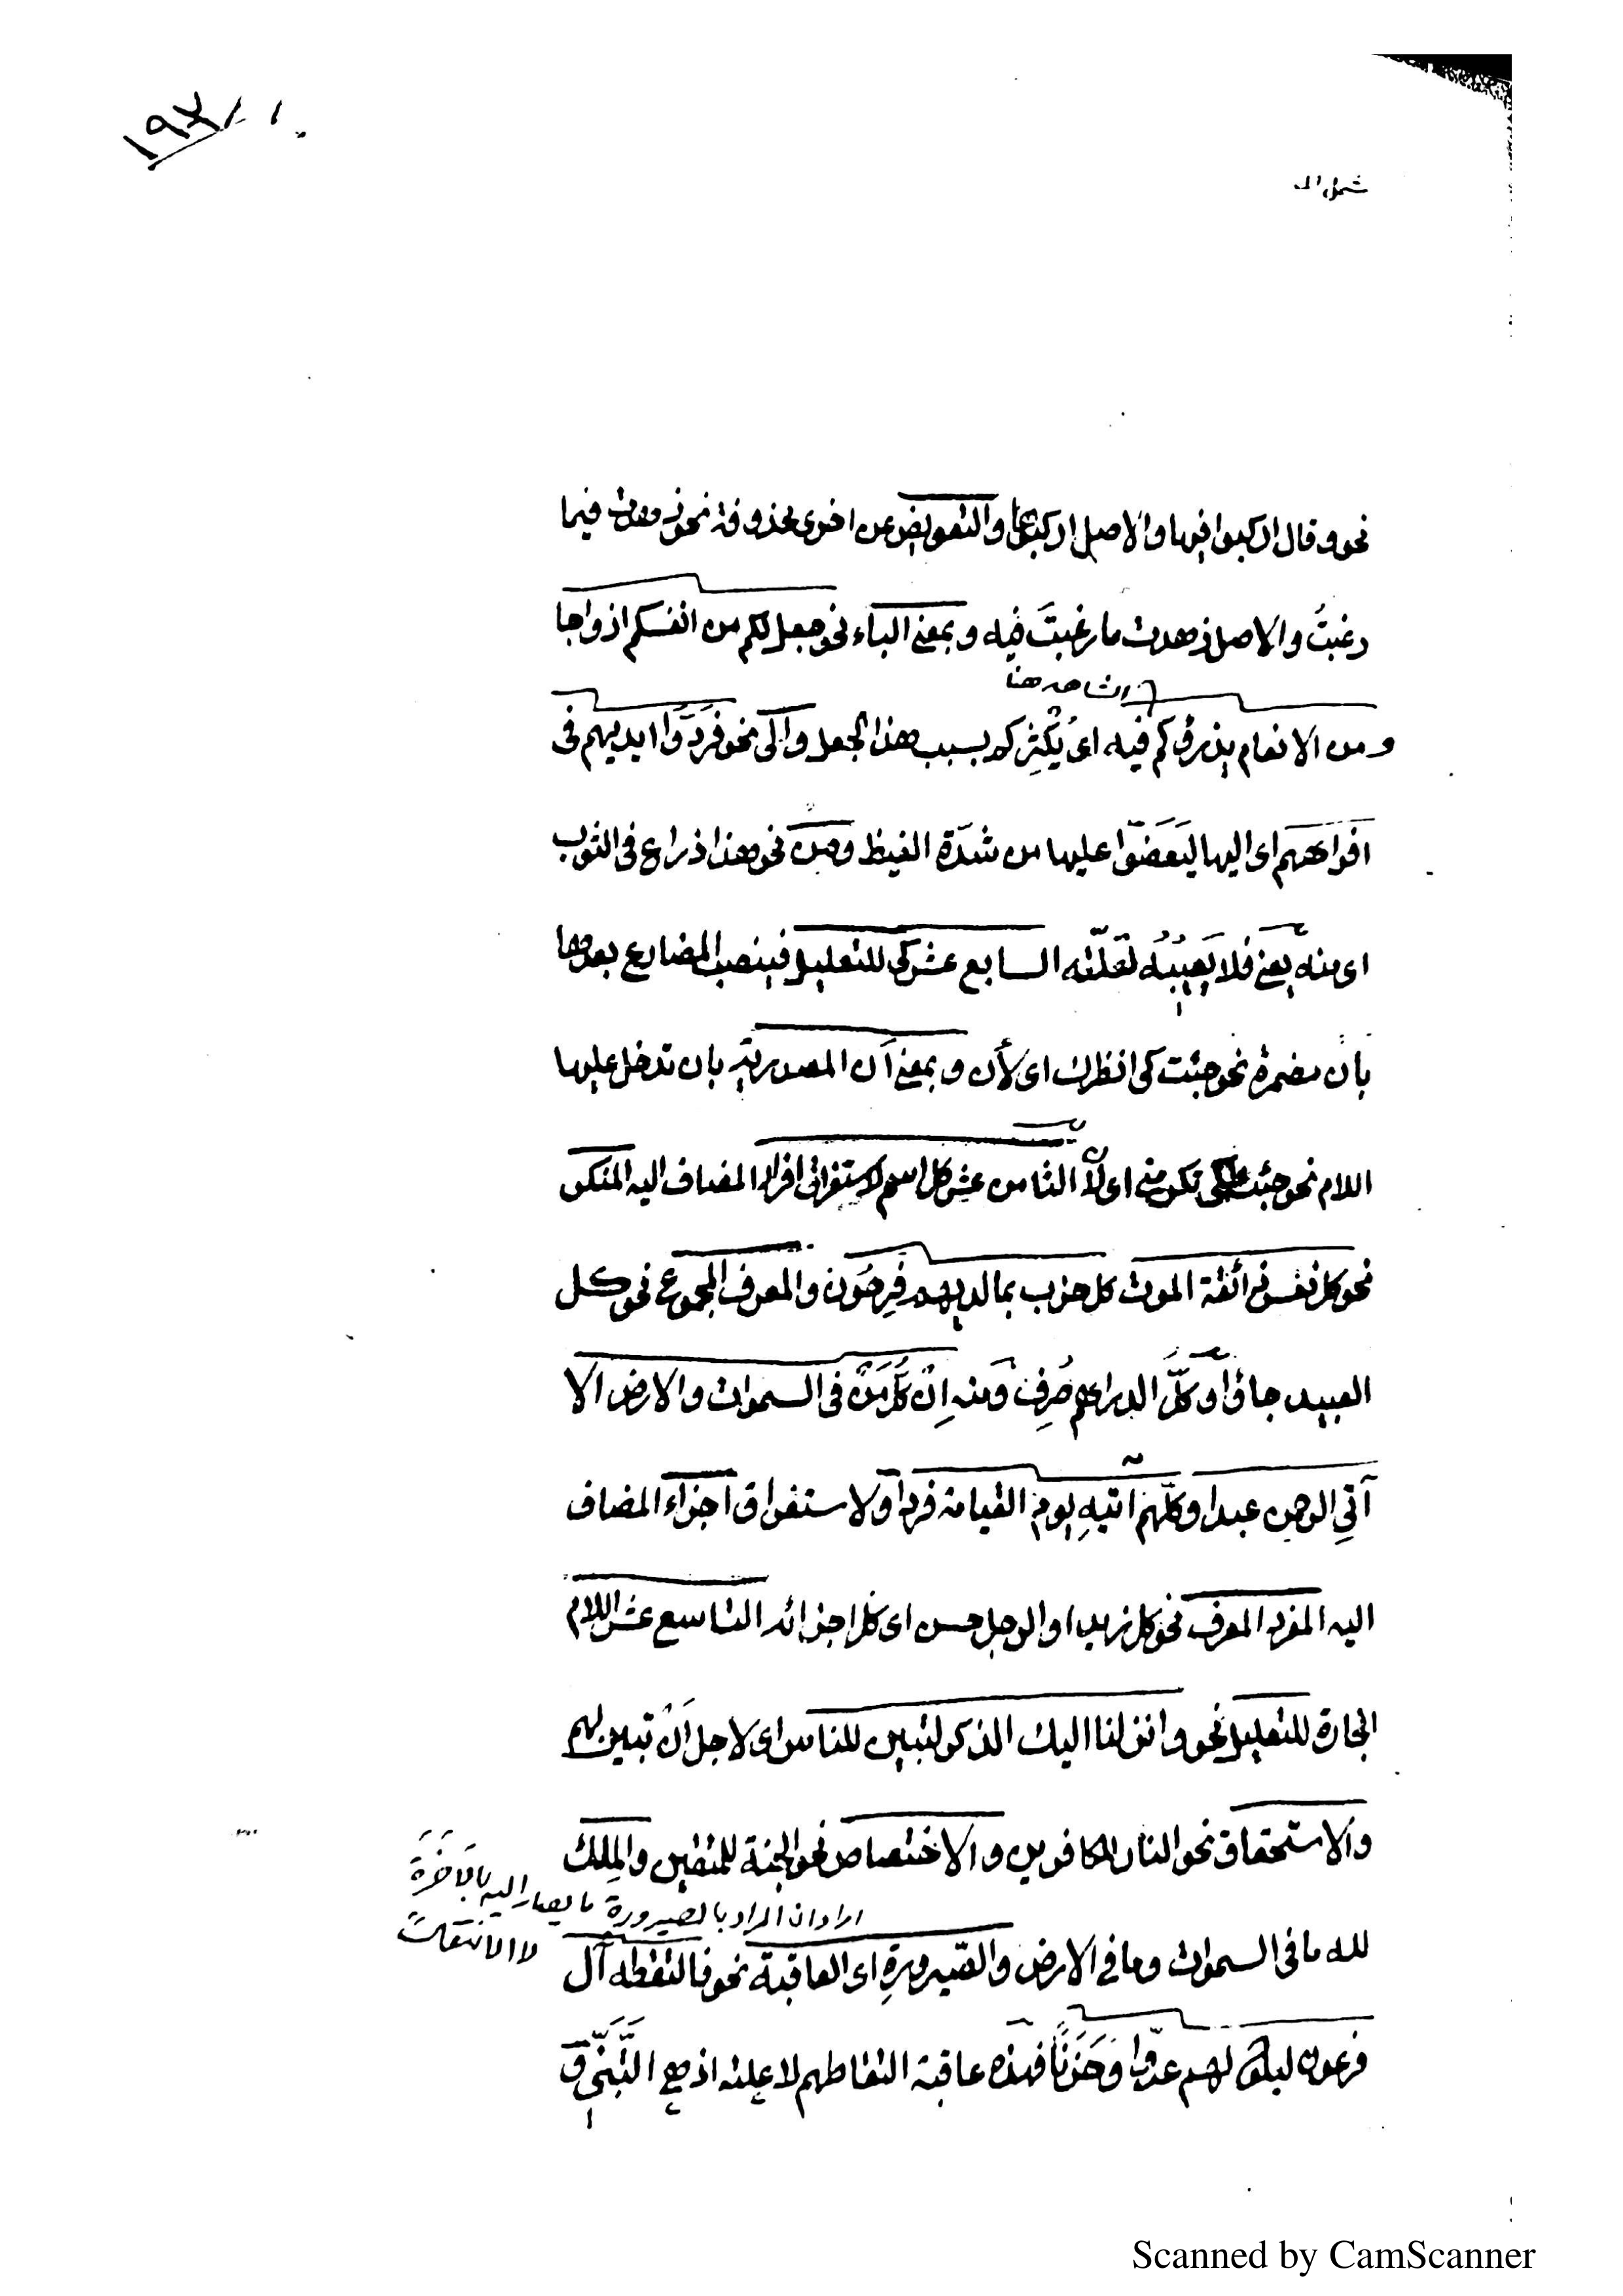 نحو وقال اركبوا فيها والاصل اركبوها والتعويض عن اخرى محذوفة نحو زهدت فيما
رغبتَ والاصل زهدت ما رغبتَ فيه وبمعنى الباء نحو جعل لكم من انفسكم ازواجا
الشاهد هنا
ومن الانعام يذرؤكم فيه اى يُكثِركم بسبب هذا الجعل والى نحو فَرَدُّوا ايديهم فى
افواههم اى اليها ليَعَضّوا عليها من شدّة الغيظ ومن نحو هذا ذراع فى الثوب
اى منه يعنى فلا يَعيبُه لقلّته السابع عشر كى للتعليل فينصب المضارع بعدها
بأن مضمرة نحو جئت كى انظرك اى لأن وبمعنى أن المصدرية بان تدخل عليها
اللام نحو جئت لكى تكرمنى اى لأن الثامن عشر كل اسم لاستغراق افراد المضاف اليه المنكر
نحو كل نفس ذائقة الموت كل حزب بما لديهم فرِحُون والمعرف المجموع نحو كل
العبيد جاؤا وكلّ الدراهم صُرِف ومنه اِنْ كُلُّ مَنْ فى السموات والارض الا
آتِى الرحمن عبدا وكلّهم آتيهِ يوم القيامة فردا ولاستغراق اجزاء المضاف
اليه المفرد المعرف نحو كل زيد او الرجل حسن اى كل اجزائه التاسع عشر اللام
الجارة للتعليل نحو وانزلنا اليك الذكر لتبين للناس اى لاجل اَنْ تبين لهم
والاستحقاق نحو النار للكافرين والاختصاص نحو الجنة للمتقين والمِلك
اراد ان المراد بالصيرورة ما يصار اليه بالآخرة
لا الانتقال
لله ما فى السموات وما في الارض والصّيرورةِ اى العاقبة نحو فالتقطه آل
فرعون ليكون لهم عدوّا وَحَزَنًا فهذه عاقبة التقاطهم لا علته اذ هى التَّبَنّى و
Scanned by CamScanner